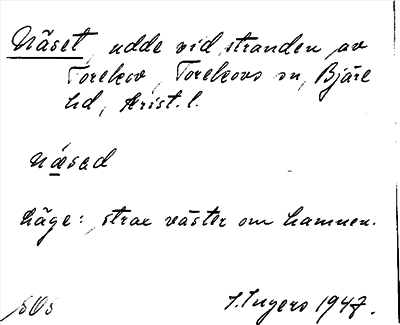 Näset, udde vid stranden av
Torekov, Torekovs sn, Bjäre
hd, Krist. l.
næsəd
Läge: strax väster om hamnen.
I. Ingers 1947.